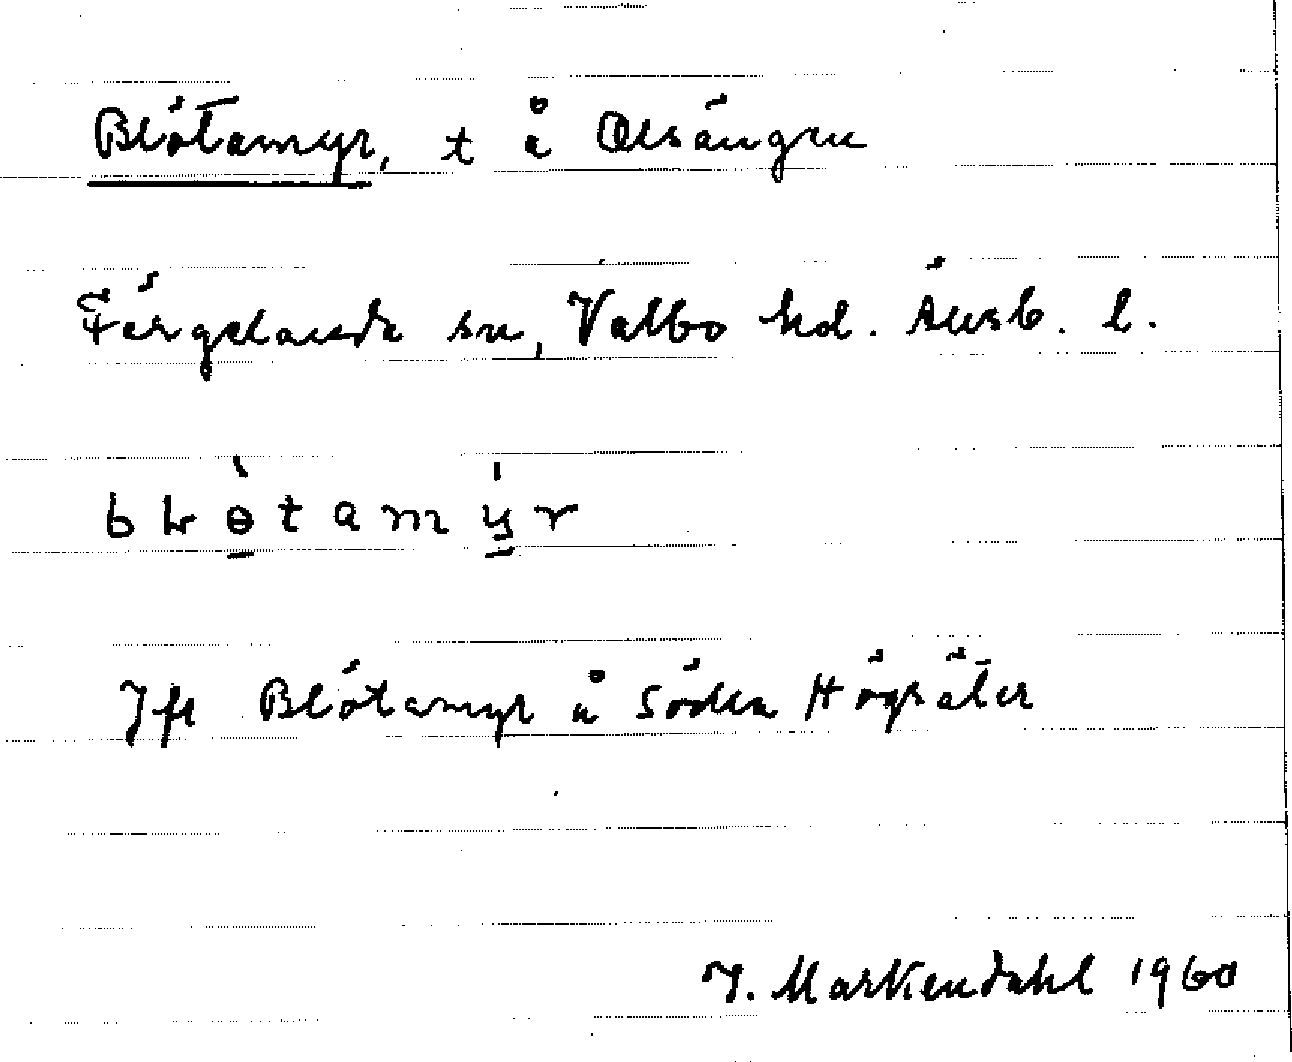 Blötamyr, t å Olsängen
Färgelanda sn, Valbo hd. Älvsb. l.
bLɵ̠̀tamý̠r
Jfr Blötamyr å Södra Högsäter
J. Markendahl 1960